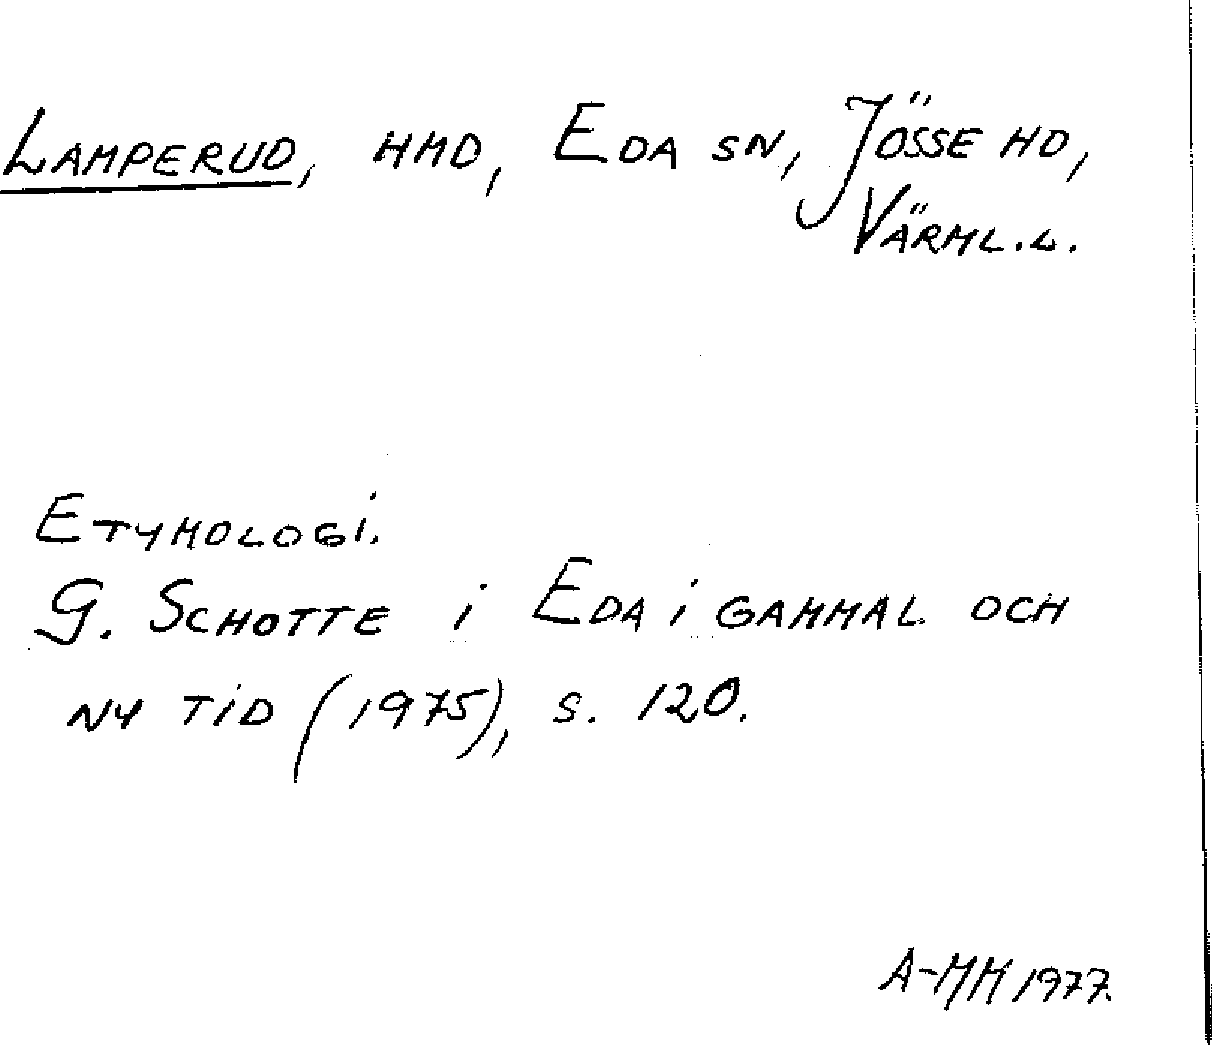 Lamperud, hmd, Eda sn, Jösse hd,
Värml.l.
Etymologi.
G. Schotte i Eda i gammal och
ny tid (1975), s. 120.
A-MH 1977.